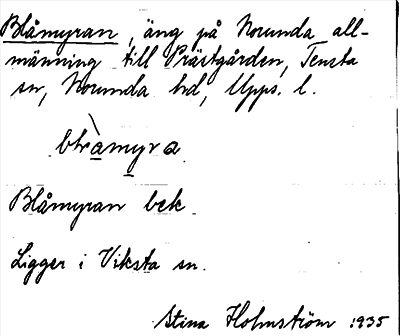 Blåmyran, äng på Norunda all-
männing till Prästgården, Tensta
sn, Norunda hd, Upps. l.
blåmyra
Blåmyran bek
Ligger i Viksta sn.
Stina Holmström 1935